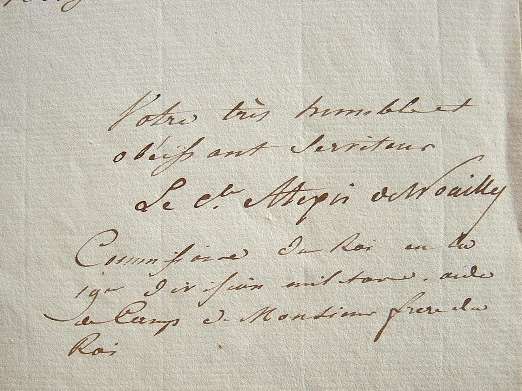 Votre très humble et
obéissant Serviteur
Le Cte Alexis de Noailles
Commissaire du Roi en la
19e division militaire. aide
de Camp de Monsieur frere du
Roi